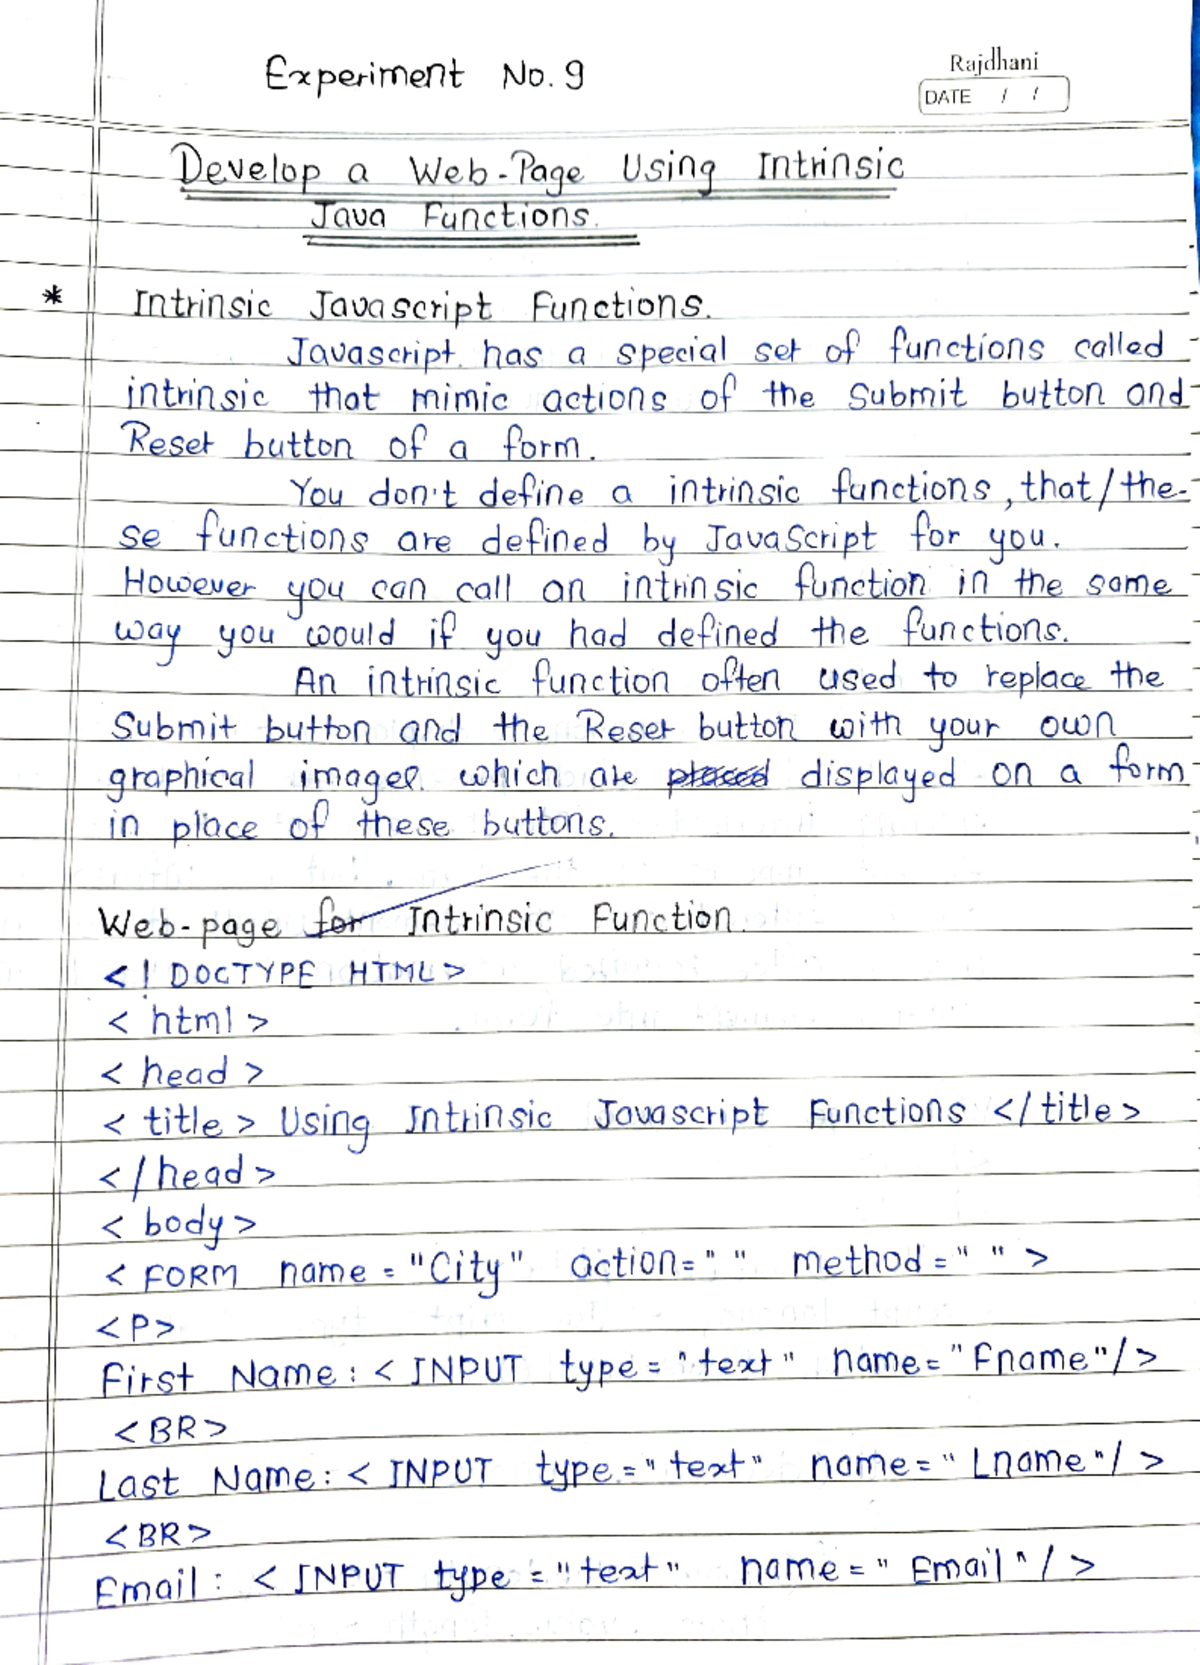 Experiment No. 9
Rajdhani
DATE / /
Develop a Web-Page Using Intrinsic
Java Functions.
* Intrinsic Javascript Functions.
Javascript. has a special set of functions called
intrinsic that mimic actions of the Submit button and
Reset button of a form.
You don't define a intrinsic functions, that/the-
se functions are defined by JavaScript for you.
However you can call an intrinsic function in the same
way you would if you had defined the functions.
An intrinsic function often used to replace the
Submit button and the Reset button with your own
graphical images. which are placed displayed on a form
in place of these buttons.
Web-page for Intrinsic Function.
<! DOCTYPE HTML>
< html >
< head >
< title > Using Intrinsic Javascript Functions </ title >
</ head >
< body >
< FORM name = "City" action= " " method = " " >
<P>
First Name : < INPUT type = "text" name = "Fname"/>
<BR>
Last Name : < INPUT type = "text" name = "Lname"/ >
<BR>
Email : < INPUT type = "text" name = "Email"/ >